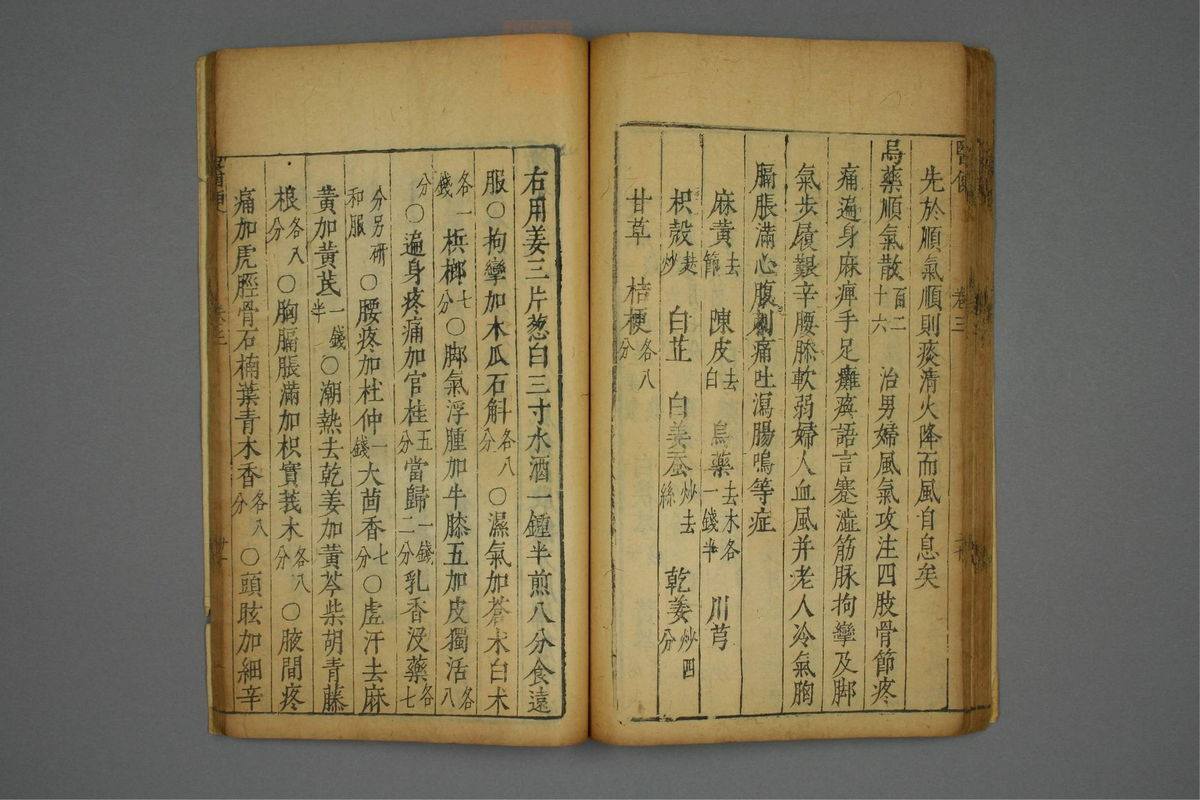 醫便 卷三
先於順氣順則痰清火降而風自息矣
烏藥順氣散百二十六 治男婦風氣攻注四肢骨節疼
痛遍身麻痺手足癱瘓語言蹇澁筋脉拘攣及脚
氣步履艱辛腰膝軟弱婦人血風并老人冷氣胸
膈脹滿心腹刺痛吐瀉腸鳴等症
麻黃去節 陳皮去白 烏藥去木各一錢半 川芎
枳殼麸炒 白芷 白姜蚕炒去絲 乾姜炒四分
甘草 桔梗各八分
右用姜三片葱白三寸水酒一鍾半煎八分食遠
服○拘攣加木瓜石斛各八分 ○濕氣加蒼术白术
各一錢 梹榔七分○脚氣浮腫加牛膝五加皮獨活各八
分○遍身疼痛加官桂五分當歸一錢二分乳香没藥各七
分另研和服 ○腰疼加杜仲一錢大茴香七分○虛汗去麻
黃加黃芪一錢半○潮熱去乾姜加黃芩柴胡青藤
根各八分 ○胸膈脹滿加枳實莪术各八分 ○腋間疼
痛加虎脛骨石楠葉青木香各八分 ○頭眩加細辛
醫便 卷三